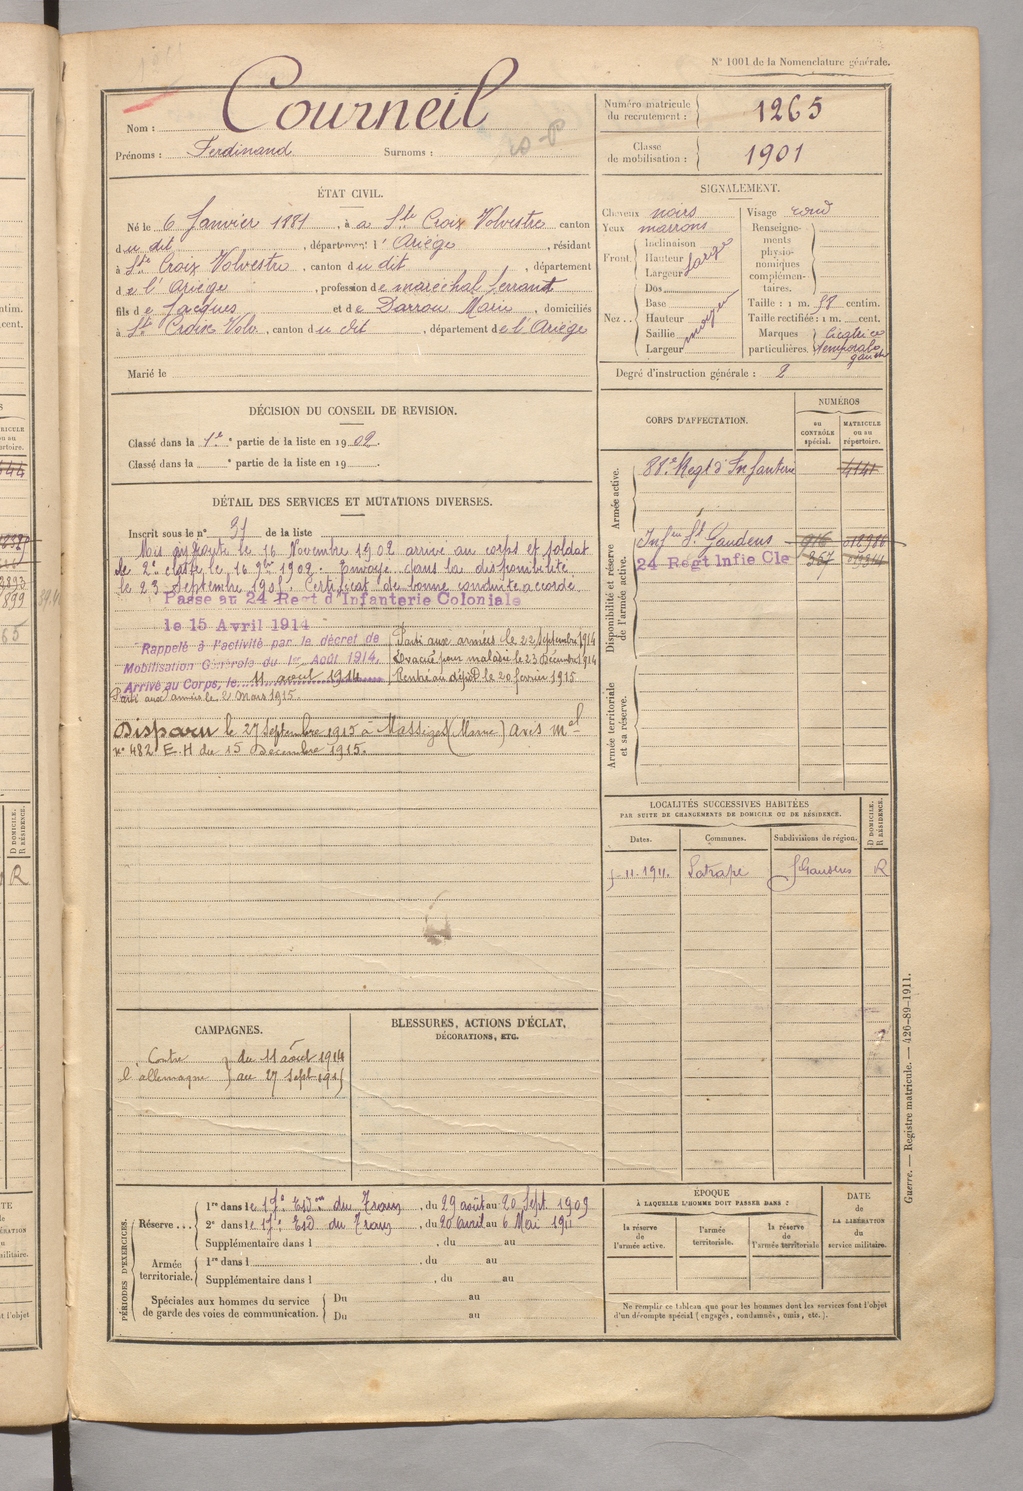 N° 1001 de la Nomenclature générale.
Nom : Courneil
Prénoms : Ferdinand Surnoms :
Numéro matricule du recrutement : 1265
Classe de mobilisation : 1901
ÉTAT CIVIL.
Né le 6 Janvier 1881, à a Ste Croix Volvestre canton
du dit, département de l'Ariège, résidant
à Ste Croix Volvestre, canton du dit, département
de l'Ariège, profession de maréchal ferrant
fils de Jacques et de Darrou Marie, domiciliés
à Ste Croix Volv., canton du dit, département de l'Ariège
Marié le
SIGNALEMENT.
Cheveux noirs
Yeux marrons
Front. Inclinaison
Hauteur
Largeur large
Nez .. Dos
Base
Hauteur moyen
Saillie
Largeur
Visage rond
Renseignements physionomiques complémentaires.
Taille : 1 m. 58 centim.
Taille rectifiée : 1 m. cent.
Marques particulières. Cicatrice temporale gauche
Degré d'instruction générale : 2
DÉCISION DU CONSEIL DE REVISION.
Classé dans la 1re partie de la liste en 1902.
Classé dans la partie de la liste en 19
DÉTAIL DES SERVICES ET MUTATIONS DIVERSES.
Inscrit sous le n° 31 de la liste
Mis en route le 16 Novembre 1902 arrive au corps et soldat
de 2e classe le 16 9bre 1902. Envoyé dans la disponibilité
le 23 Septembre 1905. Certificat de bonne conduite accordé.
Passe au 24 Regt d'Infanterie Coloniale
le 15 Avril 1914
Rappelé à l'activité par le décret de
Mobilisation Générale du 1er Août 1914.
Arrivé au Corps, le 11 août 1914
Parti aux armées le 22 Septembre 1914
Evacué pour maladie le 23 Décembre 1914
Rentré au dépôt le 20 février 1915
Parti aux armées le 2 mars 1915.
Disparu le 27 Septembre 1915 à Massiges (Marne) avis mel
n° 482 E.H du 15 Décembre 1915.
CORPS D'AFFECTATION.
NUMÉROS
au CONTRÔLE spécial.
MATRICULE ou au répertoire.
Armée active.
88e Regt d'Infanterie 4141
Disponibilité et réserve de l'armée active.
Infrie St Gaudens
24 Regt Infie Cle 367
Armée territoriale et sa réserve.
LOCALITÉS SUCCESSIVES HABITÉES
PAR SUITE DE CHANGEMENTS DE DOMICILE OU DE RÉSIDENCE.
Dates. Communes. Subdivisions de région. D DOMICILE. R RÉSIDENCE.
5-11-1911. Latrape St Gaudens R
CAMPAGNES.
Contre l'allemagne du 11 août 1914
au 27 Sept 1915
BLESSURES, ACTIONS D'ÉCLAT,
DÉCORATIONS, ETC.
PÉRIODES D'EXERCICES.
Réserve ... 1re dans le 17e Esdon du Train, du 29 août au 20 Sept. 1909
2e dans le 17e Esd. du Train, du 20 avril au 6 Mai 1911
Supplémentaire dans l , du au
Armée territoriale. 1re dans l , du au
Supplémentaire dans l , du au
Spéciales aux hommes du service de garde des voies de communication. Du au
Du au
ÉPOQUE
À LAQUELLE L'HOMME DOIT PASSER DANS :
la réserve de l'armée active.
l'armée territoriale.
la réserve de l'armée territoriale
DATE de LA LIBÉRATION du service militaire.
Ne remplir ce tableau que pour les hommes dont les services font l'objet
d'un décompte spécial (engagés, condamnés, omis, etc.).
Guerre. — Registre matricule. — 426-89-1911.